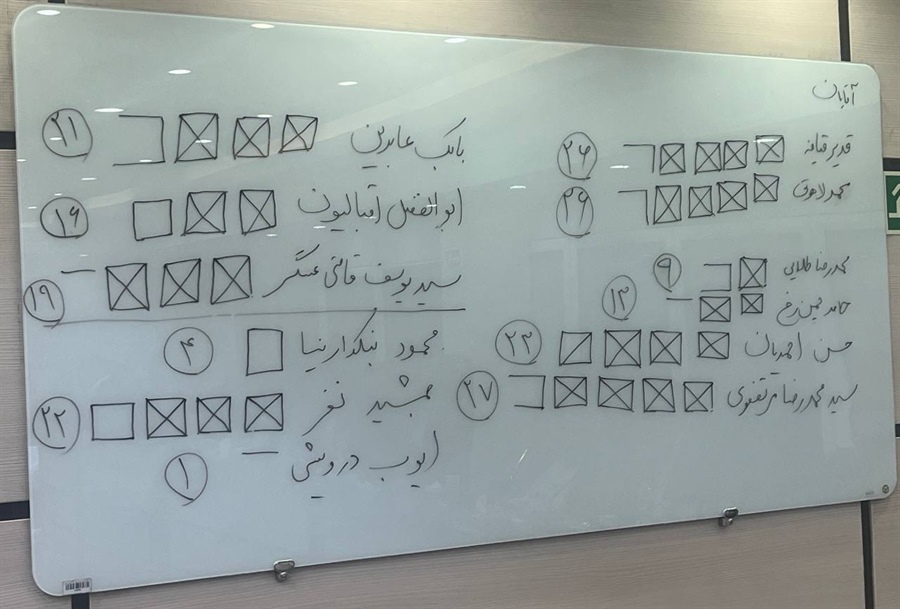 آقایان
قدیر قیافه ۲۶
محمد لاهوتی ۲۶
محمدرضا طلایی ۹
حامد یمین رخ ۱۳
حسن احمدیان ۲۳
سید محمدرضا مرتضوی ۲۷
بابک عابدین ۲۱
ابوالفضل اقبالیون ۱۶
سید یوسف عسگر ۱۹
محمود بنکدارنیا ۴
جمشید نغز ۲۲
ایوب درویشی ۱